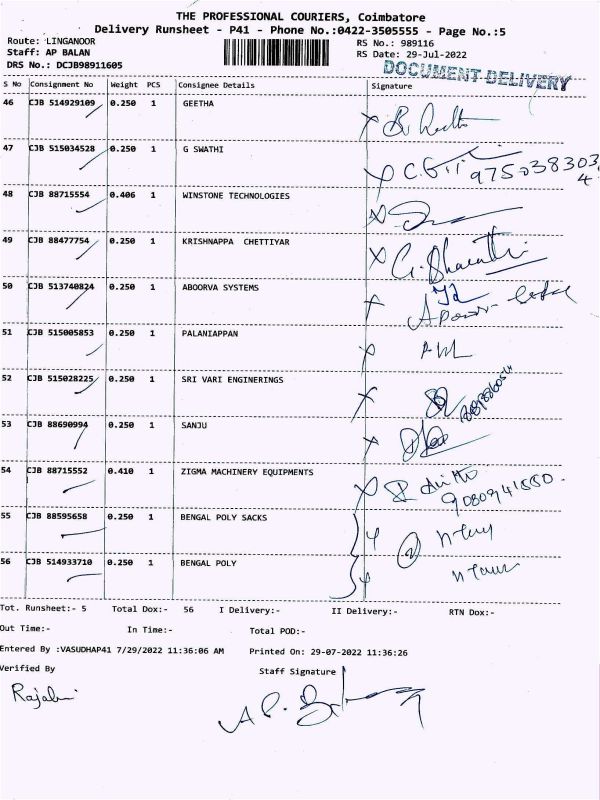 THE PROFESSIONAL COURIERS, Coimbatore
Delivery Runsheet - P41 - Phone No.:0422-3505555 - Page No.:5
Route: LINGANOOR
RS No.: 989116
Staff: AP BALAN
RS Date: 29-Jul-2022
DRS No.: DCJB98911605
DOCUMENT DELIVERY
S No Consignment No Weight PCS Consignee Details Signature
46 CJB 514929109 0.250 1 GEETHA
47 CJB 515034528 0.250 1 G SWATHI
48 CJB 88715554 0.406 1 WINSTONE TECHNOLOGIES
49 CJB 88477754 0.250 1 KRISHNAPPA CHETTIYAR G. Bharathi
50 CJB 513740824 0.250 1 ABOORVA SYSTEMS
51 CJB 515005853 0.250 1 PALANIAPPAN
52 CJB 515028225 0.250 1 SRI VARI ENGINERINGS
53 CJB 88690994 0.250 1 SANJU
54 CJB 88715552 0.410 1 ZIGMA MACHINERY EQUIPMENTS
55 CJB 88595658 0.250 1 BENGAL POLY SACKS
56 CJB 514933710 0.250 1 BENGAL POLY
Tot. Runsheet:- 5 Total Dox:- 56 I Delivery:- II Delivery:- RTN Dox:-
Out Time:- In Time:- Total POD:-
Entered By :VASUDHAP41 7/29/2022 11:36:06 AM Printed On: 29-07-2022 11:36:26
Verified By Staff Signature